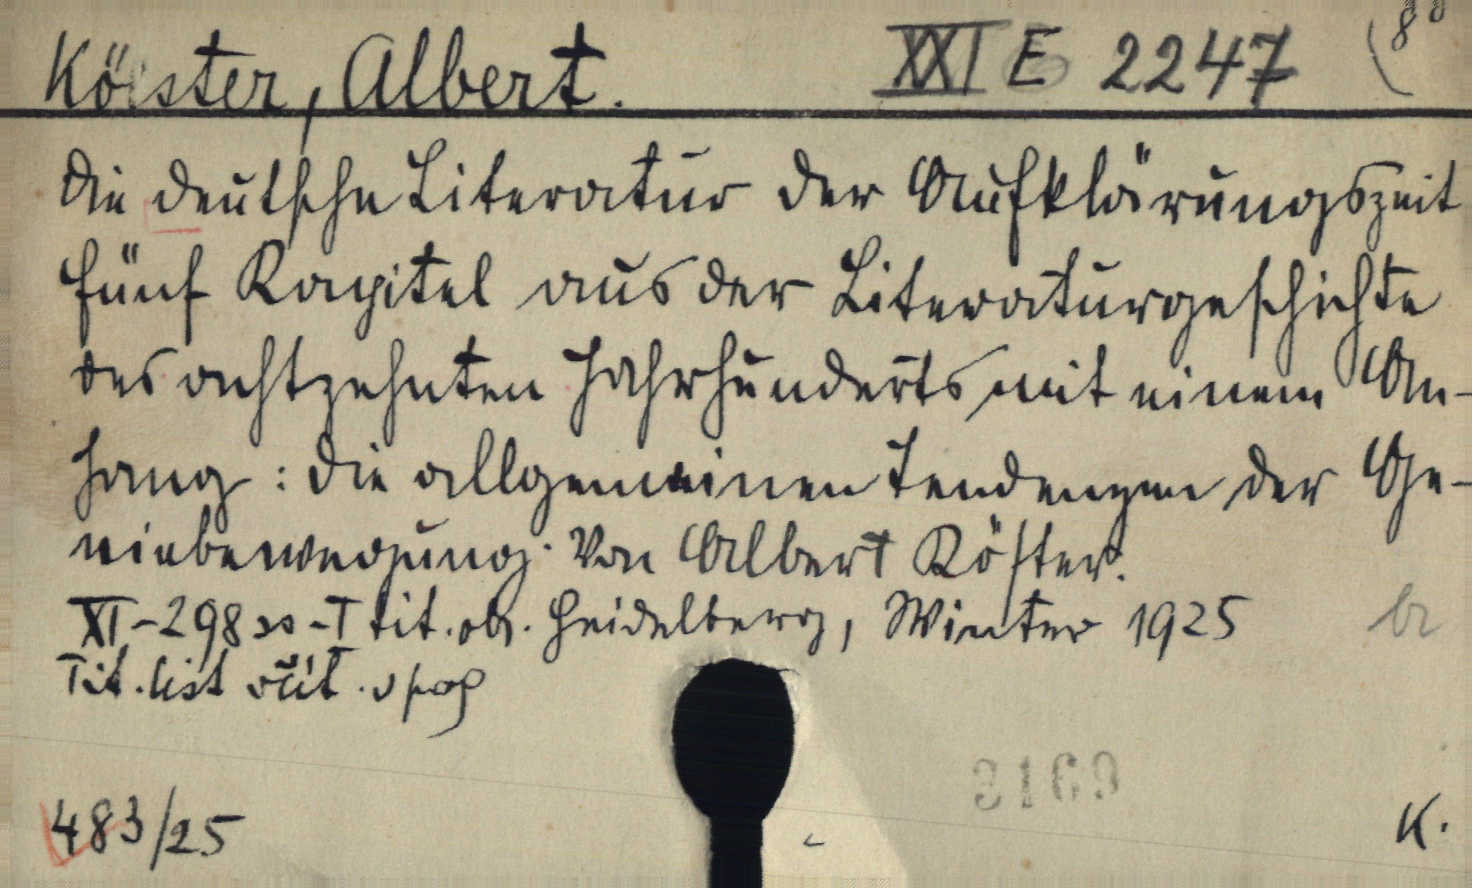 Köster, Albert. XXI E 2247 (8°
Die deutsche Literatur der Aufklärungszeit
fünf Kapitel aus der Literaturgeschichte
des achtzehnten Jahrhunderts mit einem An-
hang: Die allgemeinen Tendenzen der Ge-
niebewegung. Von Albert Köster.
XI-298 ss-I tit. ob. Heidelberg, Winter 1925
br
Tit. list včít. v pag
3169
483/25
K.